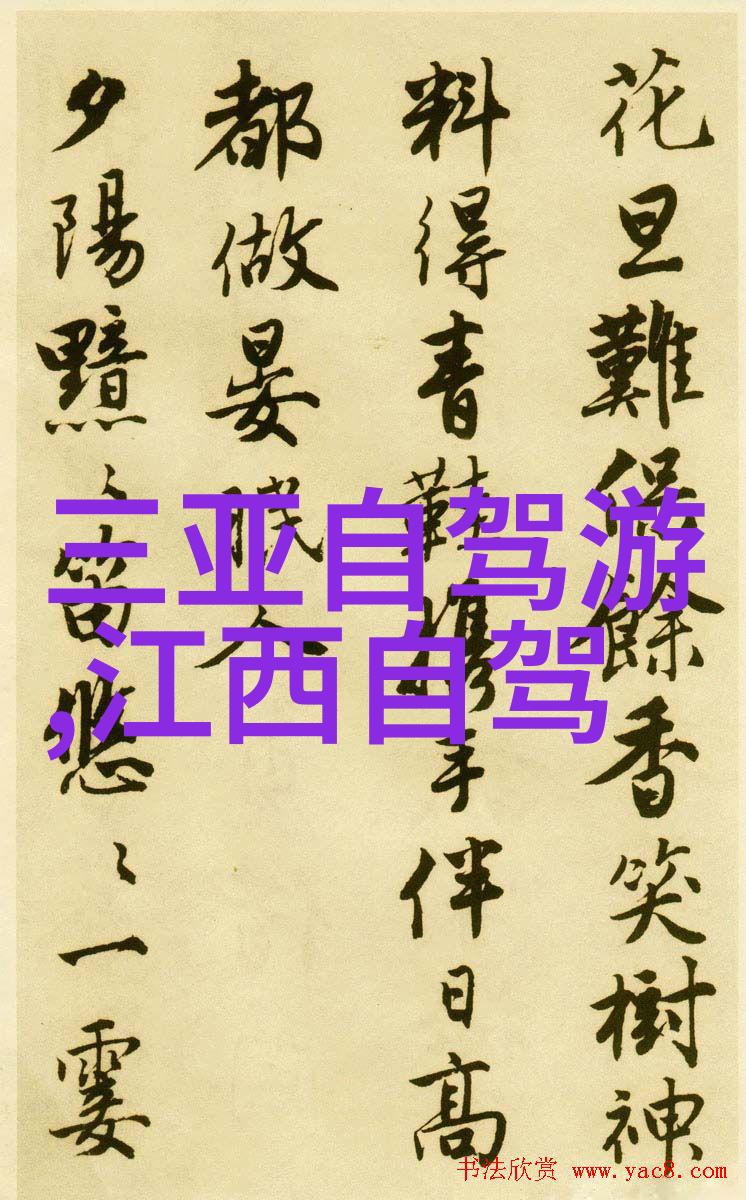 花旦難餘香笑樹神
料得青鞋攜手伴日高
都做晏眠人
夕陽黯〻笛悠〻一霎
三亚自驾游
,江西自驾
书法欣赏 www.yac8.com